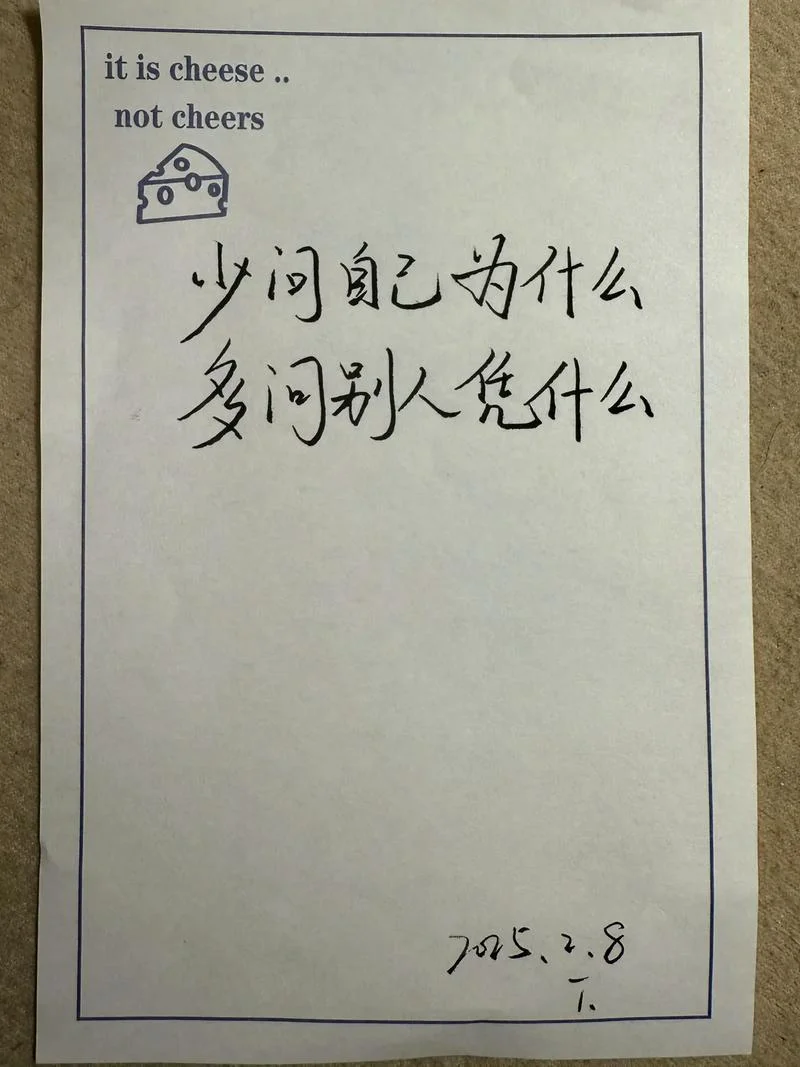 it is cheese ..
not cheers
少问自己为什么
多问别人凭什么
2025.2.8
T.